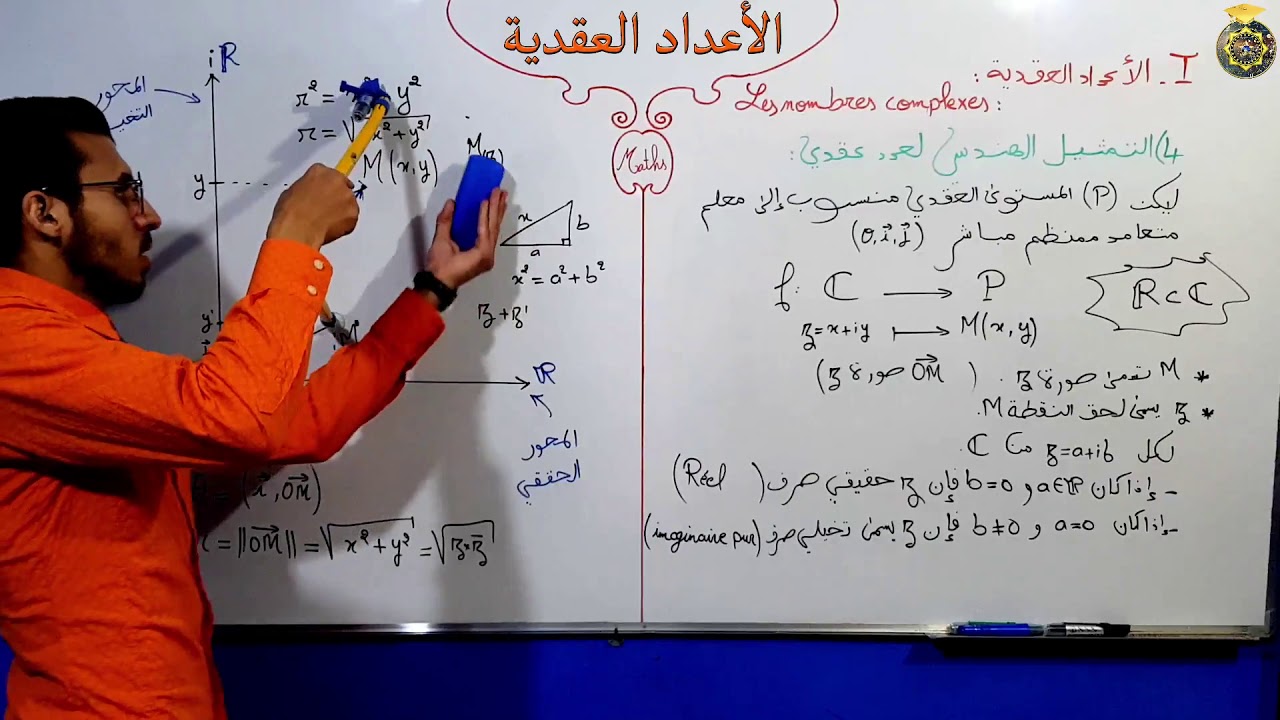 الأعداد العقدية
I - الأعداد العقدية:
Les nombres complexes:
4) التمثيل الهندسي لعدد عقدي:
ليكن (P) المستوى العقدي منسوب إلى معلم
متعامد ممنظم مباشر (O, i⃗, j⃗)
f: ℂ ⟶ P
z = x+iy ⟼ M(x, y)
ℝ ⊂ ℂ
* M تسمى صورة z. (OM⃗ صورة z)
* z يسمى لحق النقطة M.
لكل z = a+ib من ℂ
- إذا كان a∈ℝ و b=0 فإن z حقيقي صرف (Réel)
- إذا كان a=0 و b≠0 فإن z يسمى تخيلي صرف (imaginaire pur)
Maths
iℝ
المحور
y² = r²
r = √x²+y²
M(x, y)
y
x
b
a
x² = a² + b²
z + z'
y'
ℝ
المحور
الحقيقي
= (i⃗, OM⃗)
= ||OM⃗|| = √x²+y² = √z·z̄